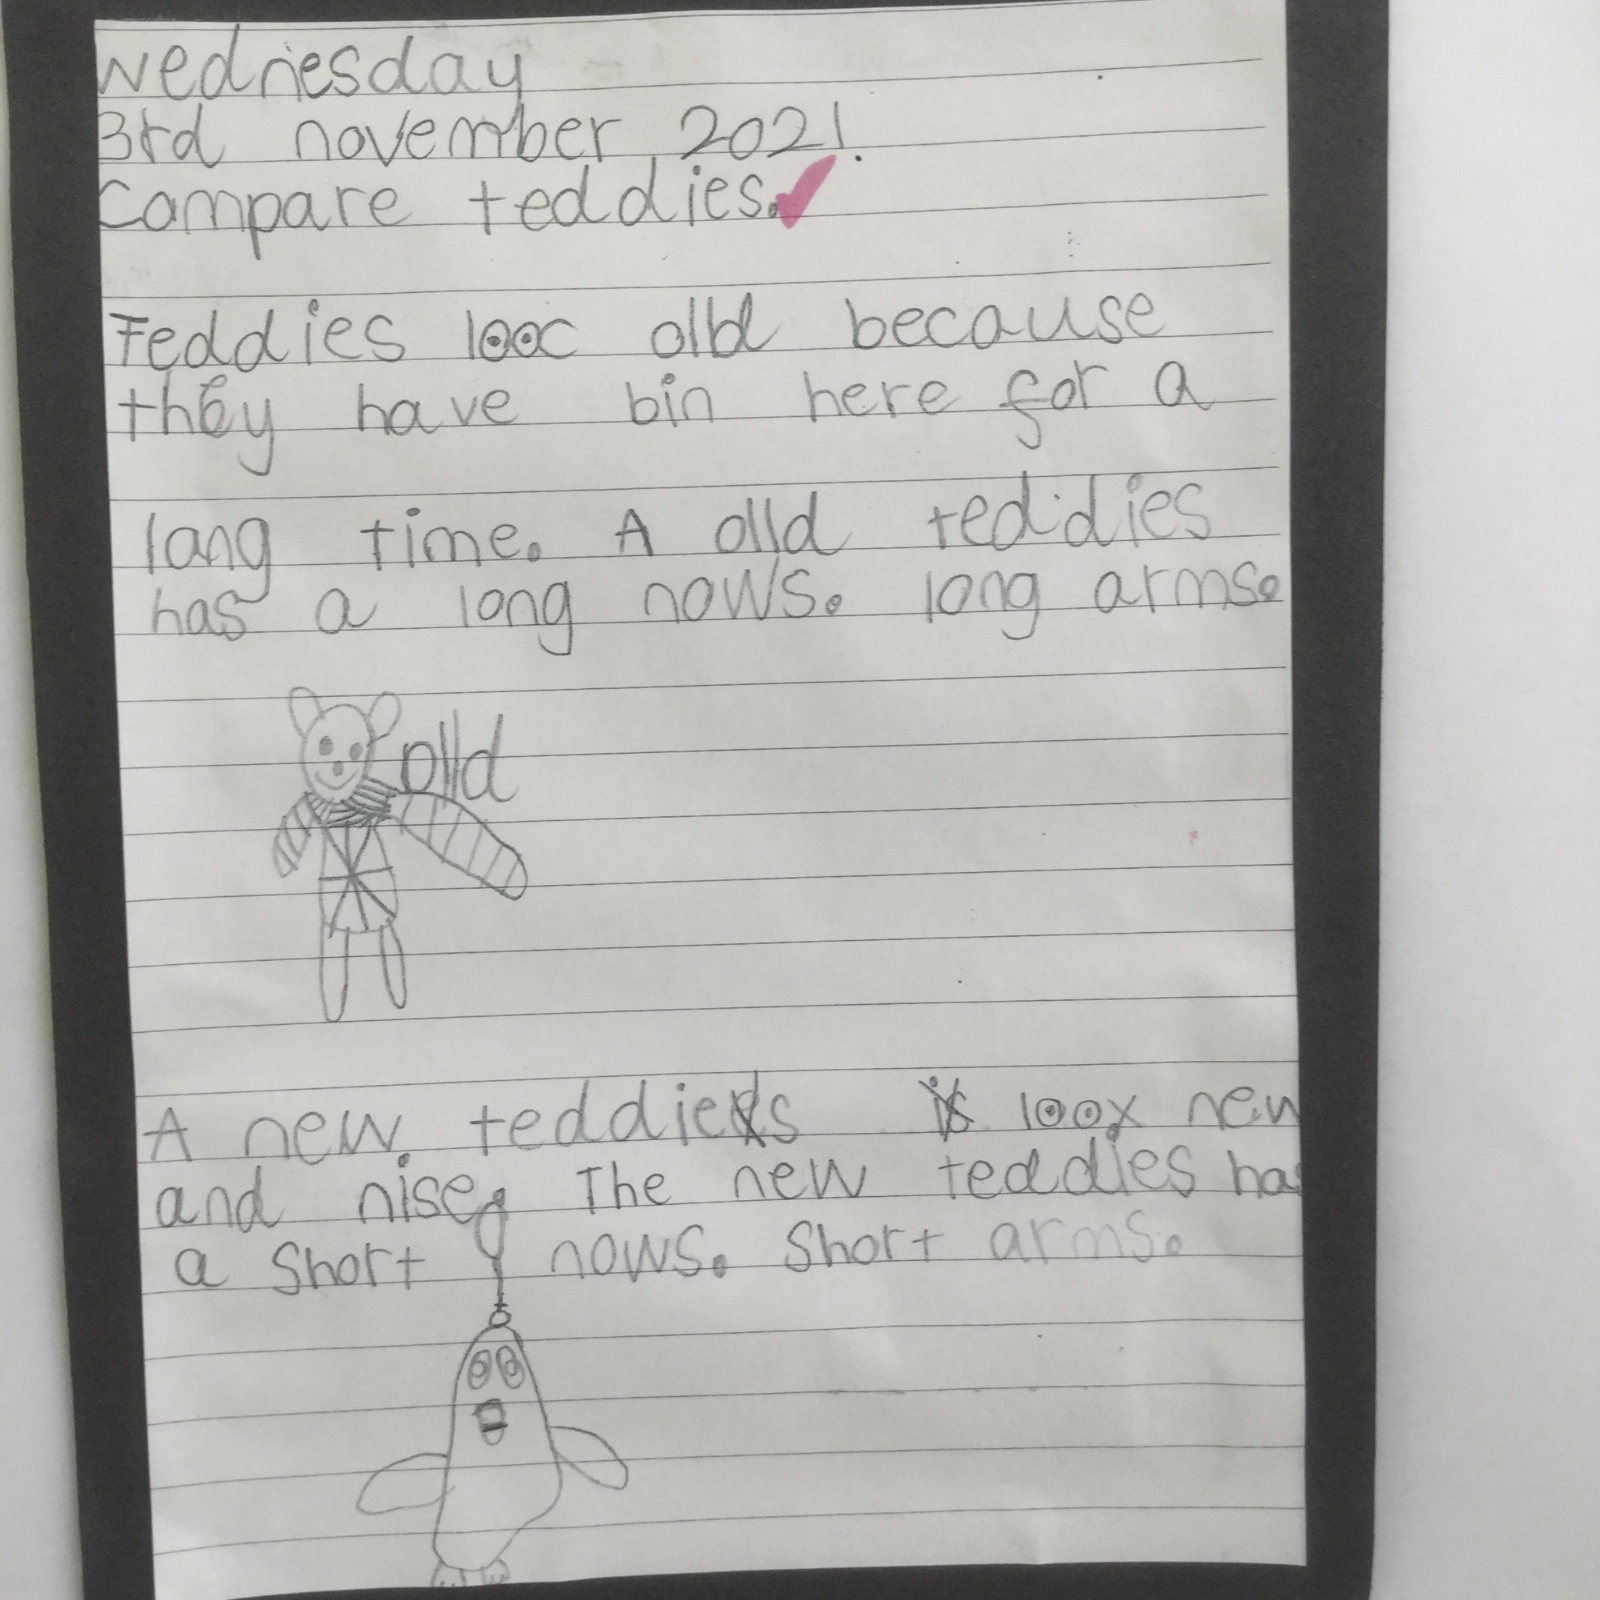 wednesday
3rd november 2021.
Compare teddies.
Teddies looc olld because
they have bin here for a
lang time. A olld teddies
has a long nows. long arms.
olld
A new teddies loox new
and nise. The new teddies has
a Short nows. Short arms.